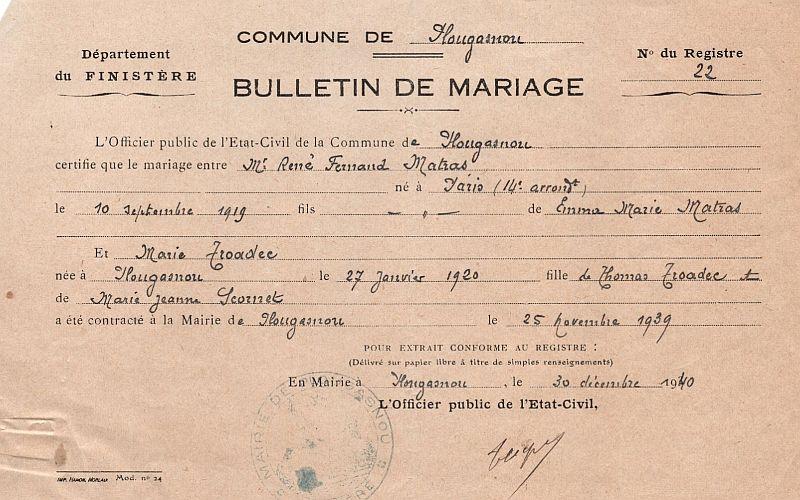 COMMUNE DE Plougasnou
Département
du FINISTÈRE
No du Registre
22
BULLETIN DE MARIAGE
L'Officier public de l'Etat-Civil de la Commune de Plougasnou
certifie que le mariage entre Mr René Fernand Matras
né à Paris (14e arrondt)
le 10 septembre 1919 fils — „ — de Emma Marie Matras
Et Marie Troadec
née à Plougasnou le 27 Janvier 1920 fille de Thomas Troadec et
de Marie Jeanne Scornet
a été contracté à la Mairie de Plougasnou le 25 novembre 1939
POUR EXTRAIT CONFORME AU REGISTRE :
(Délivré sur papier libre à titre de simples renseignements)
En Mairie à Plougasnou, le 30 décembre 1940
L'Officier public de l'Etat-Civil,
MAIRIE DE PLOUGASNOU
IMP. HAMON, MORLAIX Mod. no 24